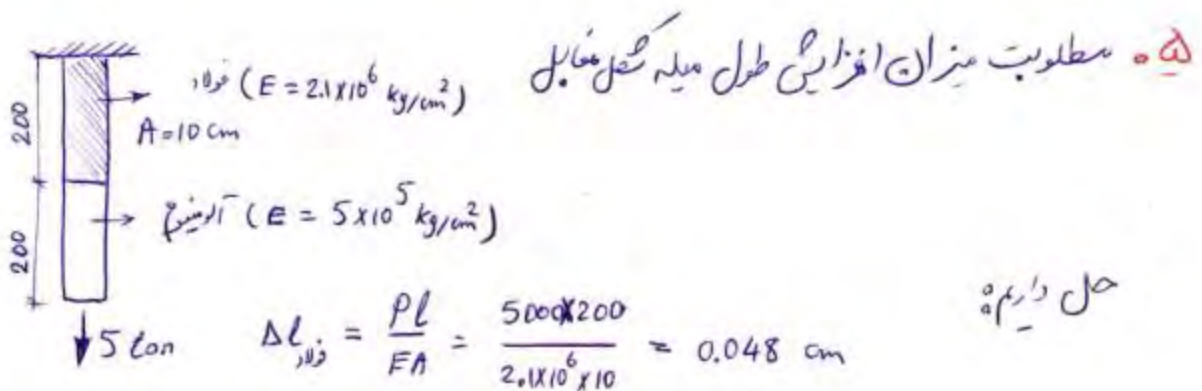 ۵. مطلوبست میزان افزایش طول میله شکل مقابل
فولاد (E = 2.1×10⁶ kg/cm²)
A=10 cm
200
آلومینیوم (E = 5×10⁵ kg/cm²)
200
حل داریم:
5 ton
Δl فولاد = Pl/EA = 5000×200/2.1×10⁶×10 = 0.048 cm